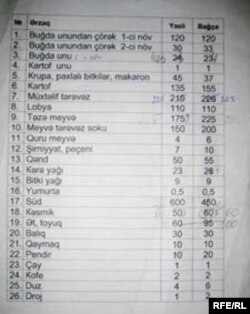 № Ərzaq Yasli Bağça
1. Buğda unundan çörək 1-ci növ 120 120
2. Buğda unundan çörək 2-ci növ 30 33
3. Buğda unu 24 23
4. Kartof unu 1 1
5. Krupa, paxlalı bitkilər, makaron 45 37
6. Kartof 135 155
7. Müxtəlif tərəvəz 215 226
8. Lobya 110 110
9. Təzə meyvə 175 225
10. Meyvə tərəvəz soku 150 200
11. Quru meyvə 4 6
12. Şirniyyat, peçeni 7 10
13. Qənd 50 55
14. Kərə yağı 23 28
15. Bitki yağı 9 9
16. Yumurta 0,5 0,5
17. Süd 600 450
18. Kəsmik 50 60
19. Ət, toyuq 60 95
20. Balıq 30 30
21. Qaymaq 10 10
22. Pendir 10 20
23. Çay 1 1
24. Kofe 2 2
25. Duz 4 6
26. Droj 1 2
RFE/RL